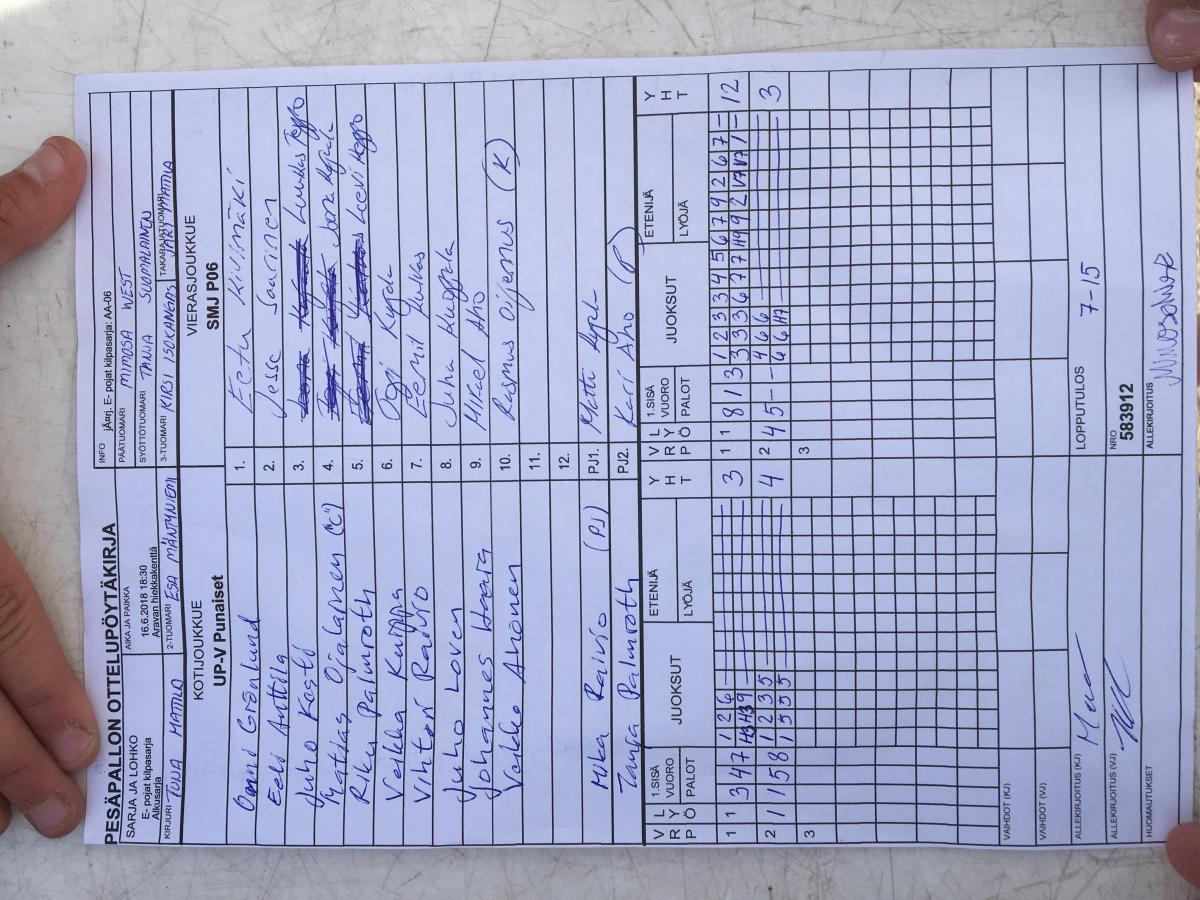 PESÄPALLON OTTELUPÖYTÄKIRJA
SARJA JA LOHKO
E- pojat kilpasarja
Alkusarja
AIKA JA PAIKKA
16.6.2018 18:30
Aravan hiekkakenttä
INFO järj. E- pojat kilpasarja: AA-06
PÄÄTUOMARI MIMOSA WEST
SYÖTTÖTUOMARI TANJA SUOMALAINEN
KIRJURI TUIJA MATTILA 2-TUOMARI ESA MÄNTYNIEMI 3-TUOMARI KIRSI ISOKANGAS TAKARAJATUOMARI JARY MATTILA
KOTIJOUKKUE VIERASJOUKKUE
UP-V Punaiset SMJ P06
Onni Grönlund 1. Eetu Kivimäki
Eeli Anttila 2. Jesse Saarinen
Juho Kasti 3. Luukas Keppo
Matias Ojalainen ("C") 4.
Riku Palmroth 5. Leevi Keppo
Veikka Kuoppa 6.
Vihtori Raivio 7. Eemil
Juho Loven 8. Juha Kuoppala
Johannes Haara 9. Mikael Aho
Veikko Ahonen 10. Rasmus Oijemus (K)
11.
12.
Mika Raivio (PJ) PJ1. Matti
Tanja Palmroth PJ2. Kari Aho (P)
V R Ö L Y P 1.SISÄ VUORO PALOT JUOKSUT ETENIJÄ LYÖJÄ Y H T V R Ö L Y P 1.SISÄ VUORO PALOT JUOKSUT ETENIJÄ LYÖJÄ Y H T
1 1 3 4 7 1 2 6 3 1 1 8 1 3 1 2 3 3 4 5 6 7 9 2 6 7 12
2 1 1 5 8 1 2 3 5 4 2 4 5 - 4 6 6 3
1 5 5 5 6 6 H7
3 3
VAIHDOT (KJ)
VAIHDOT (VJ)
ALLEKIRJOITUS (KJ) LOPPUTULOS 7-15
ALLEKIRJOITUS (VJ) NRO 583912
HUOMAUTUKSET ALLEKIRJOITUS